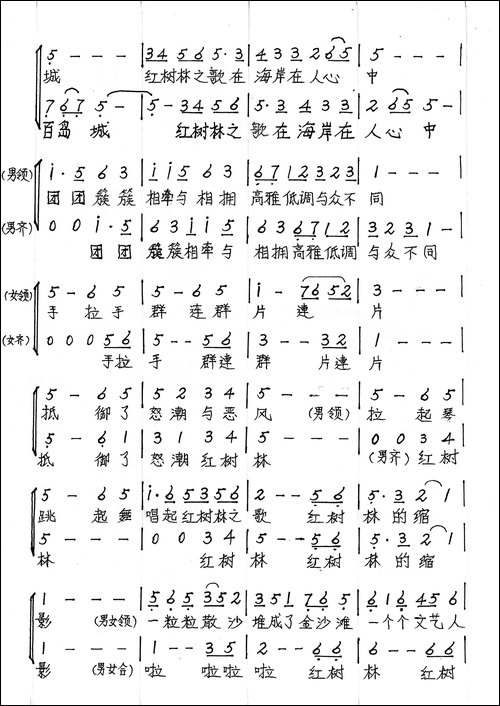 5 - - - | 3 4 5 6 5 · 3 | 4 3 3 2 6 5 | 5 - - - |
城 红树林之歌在 海岸在人心 中
7 6 7 5 - | 5 - 3 4 5 6 | 5 · 3 4 3 3 | 2 6 5 5 - |
百岛 城 红树林之 歌在海岸在 人心 中
(男领) i · 5 6 3 | i i 5 6 3 | 6 7 1 2 3 2 3 | 1 - - - |
团 团 簇 簇 相牵与 相 拥 高雅低调与众不 同
(男齐) 0 0 i · 5 | 6 3 i i 5 | 6 3 6 7 1 2 | 3 2 3 1 - |
团 团 簇簇相牵与 相拥高雅低调 与众不同
(女领) 5 - 6 5 | 5 - 6 5 | i - 7 6 5 2 | 3 - - - |
手 拉 手 群 连 群 片 連 片
(女齐) 0 0 0 5 6 | 5 - - 5 6 | 3 - - 3 2 | 1 - - - |
手拉 手 群連 群 片連 片
5 - 6 5 | 5 2 3 4 | 5 - - - | 5 - 6 5 |
抵 御 了 怒 潮 与 恶 风 (男领) 拉 起 琴
5 - 6 1 | 3 1 3 4 | 5 - - - | 0 0 3 4 |
抵 御 了 怒 潮 红 树 林 (男齐) 红 树
5 - 6 5 | i · 6 5 3 5 6 | 2 - - 5 6 | 5 · 3 2 1 |
跳 起 舞 唱起红树林之 歌 红树 林 的 缩
5 - - - | 0 0 3 4 | 5 - - 5 6 | 5 · 3 2 1 |
林 红 树 林 红树 林 的 缩
1 - - - | 5 6 5 3 5 2 | 3 5 1 7 6 5 | 6 1 6 4 5 6 |
影 (男女领) 一粒粒散 沙 堆成了金沙滩 一个个文艺人
1 - - - | 1 - - 3 5 | 2 - - 6 6 | 1 - - 6 6 |
影 (男女合) 啦 啦啦 啦 红树 林 红树